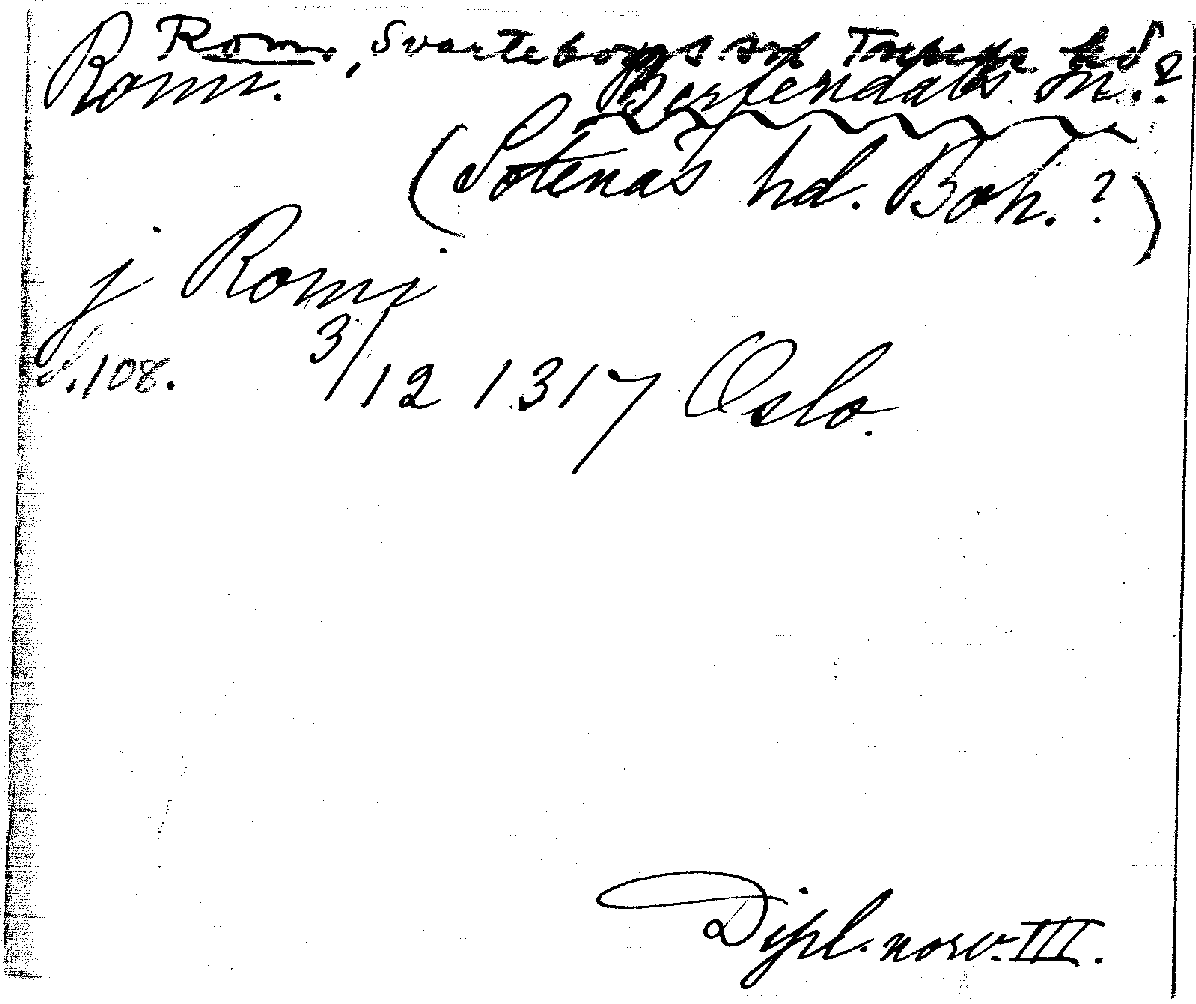 Rom, Svarteborgs sn Tunge hd?
Romm. Bärfendals sn.?
(Sotenäs hd. Boh.?)
j Romi
s.108. 3/12 1317 Oslo.
Dipl. norv. III.